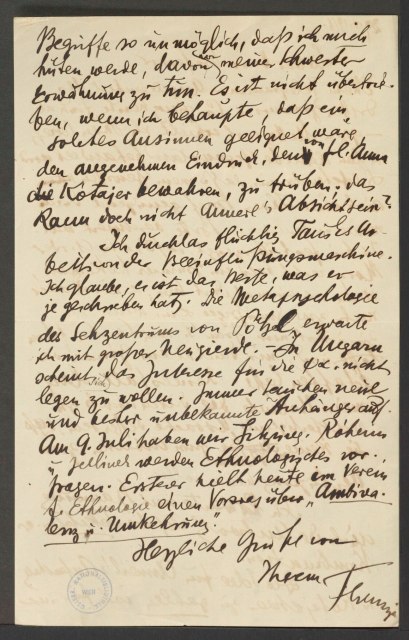 Begriffe so unmöglich, daß ich mich
hüten werde, davon meiner Schwester
Erwähnung zu tun. Es ist nicht übertrie-
ben, wenn ich behaupte, daß ein
solches Ansinnen geeignet wäre,
den angenehmen Eindruck, den wir von Frl. Anna
die Kotajer bewahren, zu trüben. das
kann doch nicht Annerl's Absicht sein?
Ich durchlas flüchtig Tausks Ar-
beit von der Beeinflußungsmaschine.
Ich glaube, es ist das Beste, was er
je geschrieben hat. Die Metapsychologie
des Sehzentrums von Pötzl erwarte
ich mit großer Neugierde. – In Ungarn
scheint sich das Interesse für die ΨΑ. nicht
legen zu wollen. Immer tauchen neue
und bisher unbekannte Anhänger auf.
Am 9. Juli haben wir Sitzung. Róheim
u. werden Ethnologisches vor-
tragen. Ersterer hielt heute im Verein
f. Ethnologie einen Vortrag über „Ambiva-
lenz u. Umkehrung".
Herzliche Grüße von
Ihrem Ferenczi